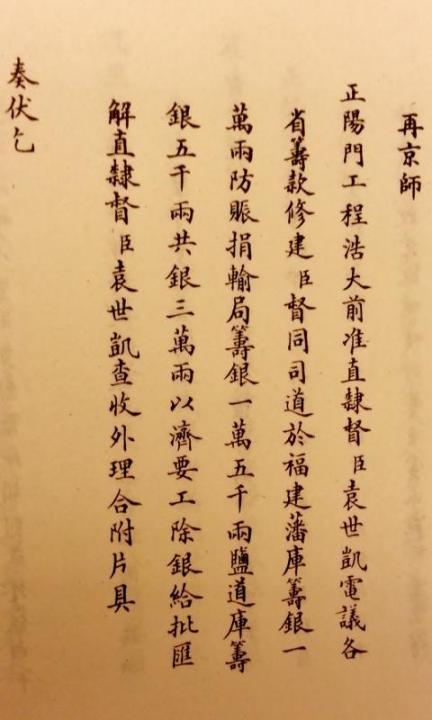 再京師
正陽門工程浩大前准直隸督臣袁世凱電議各
省籌款修建臣督同司道於福建藩庫籌銀一
萬兩防賑捐輸局籌銀一萬五千兩鹽道庫籌
銀五千兩共銀三萬兩以濟要工除銀給批匯
解直隸督臣袁世凱查收外理合附片具
奏伏乞